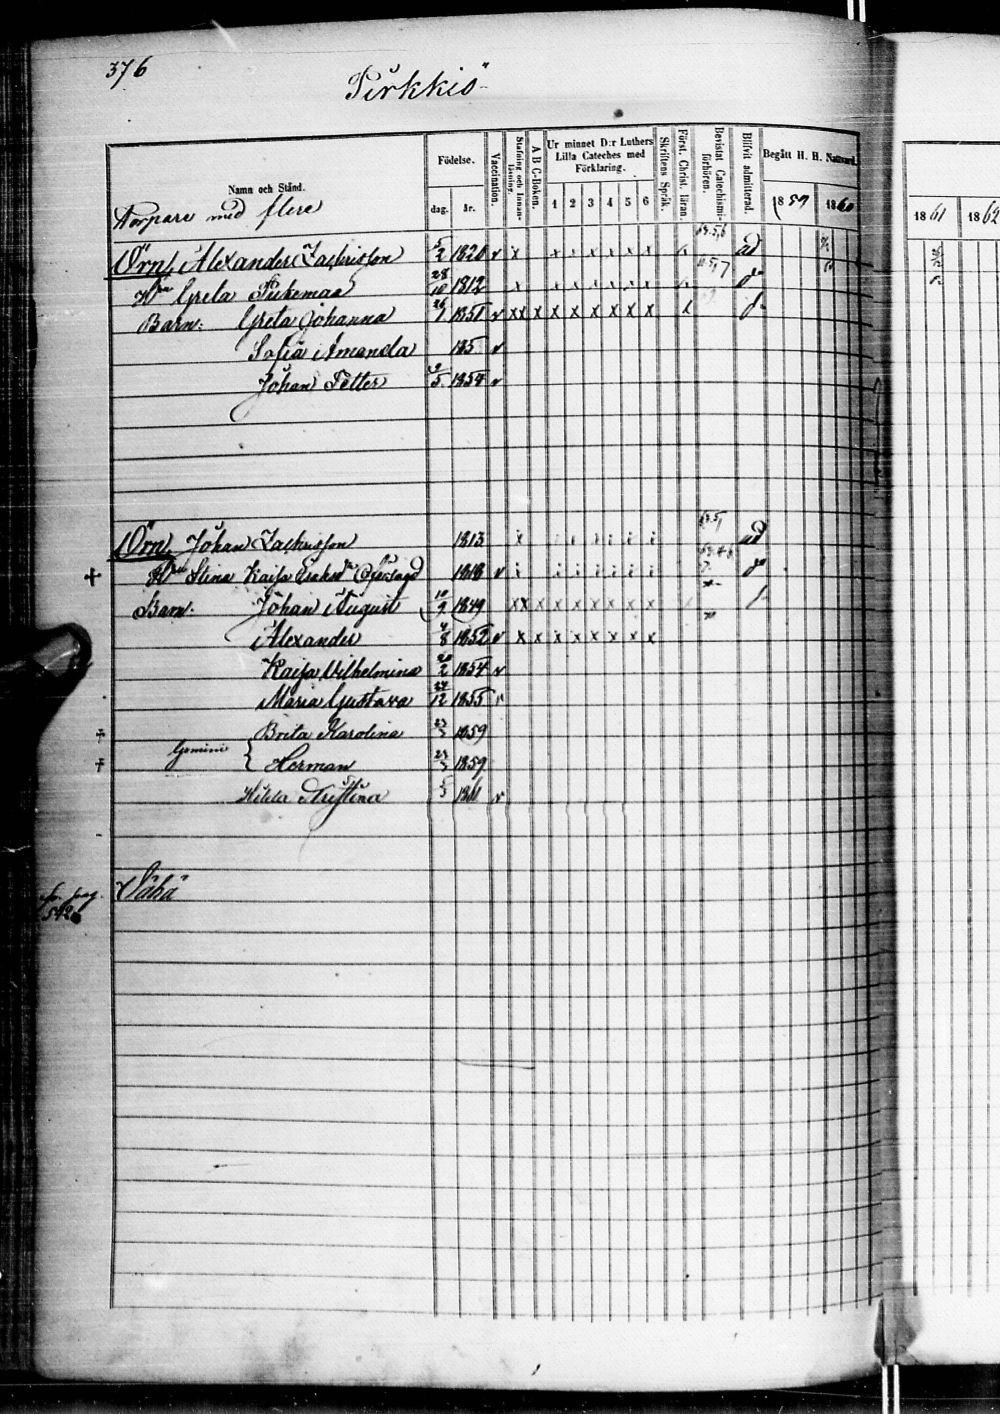 376
Pirkkiö
Namn och Stånd.
Födelse.
dag. år.
Vaccination.
Stafning och Innanläsning.
A B C-Boken.
Ur minnet D:r Luthers Lilla Cateches med Förklaring.
1 2 3 4 5 6
Skriftens Språk.
Först. Christ. läran.
Bevistat Catechismiförhören.
Blifvit admitterad.
Begått H. H. Nattvard.
1859 1860
1861 1862
Torpare med flere
Örn, Alexander Zachrisson 5/2 1820 v x x x x x x x x ad
Hu Greta 28/10 1812 x x x x x x x x do
Barn: Greta Johanna 26/1 1851 v xx x x x x x x x x
Sofia Amanda 185 v
Johan Petter 1854 v
Örn, Johan Zachrisson 1813 x ad
+ Hu Stina Kaisa 1818 v do
Barn: Johan August 10/9 1849 xx x x x x x x x
Alexander 4/8 1852 v x x x x x x x x
Kaisa Vilhelmina 20/2 1854 v
Maria Gustava 24/12 1855 v
+ Brita Karolina 23/3 1859
Gemini {
+ Herman 23/3 1859
Hilda Kristina 1861 v
Vähä
pag. 542